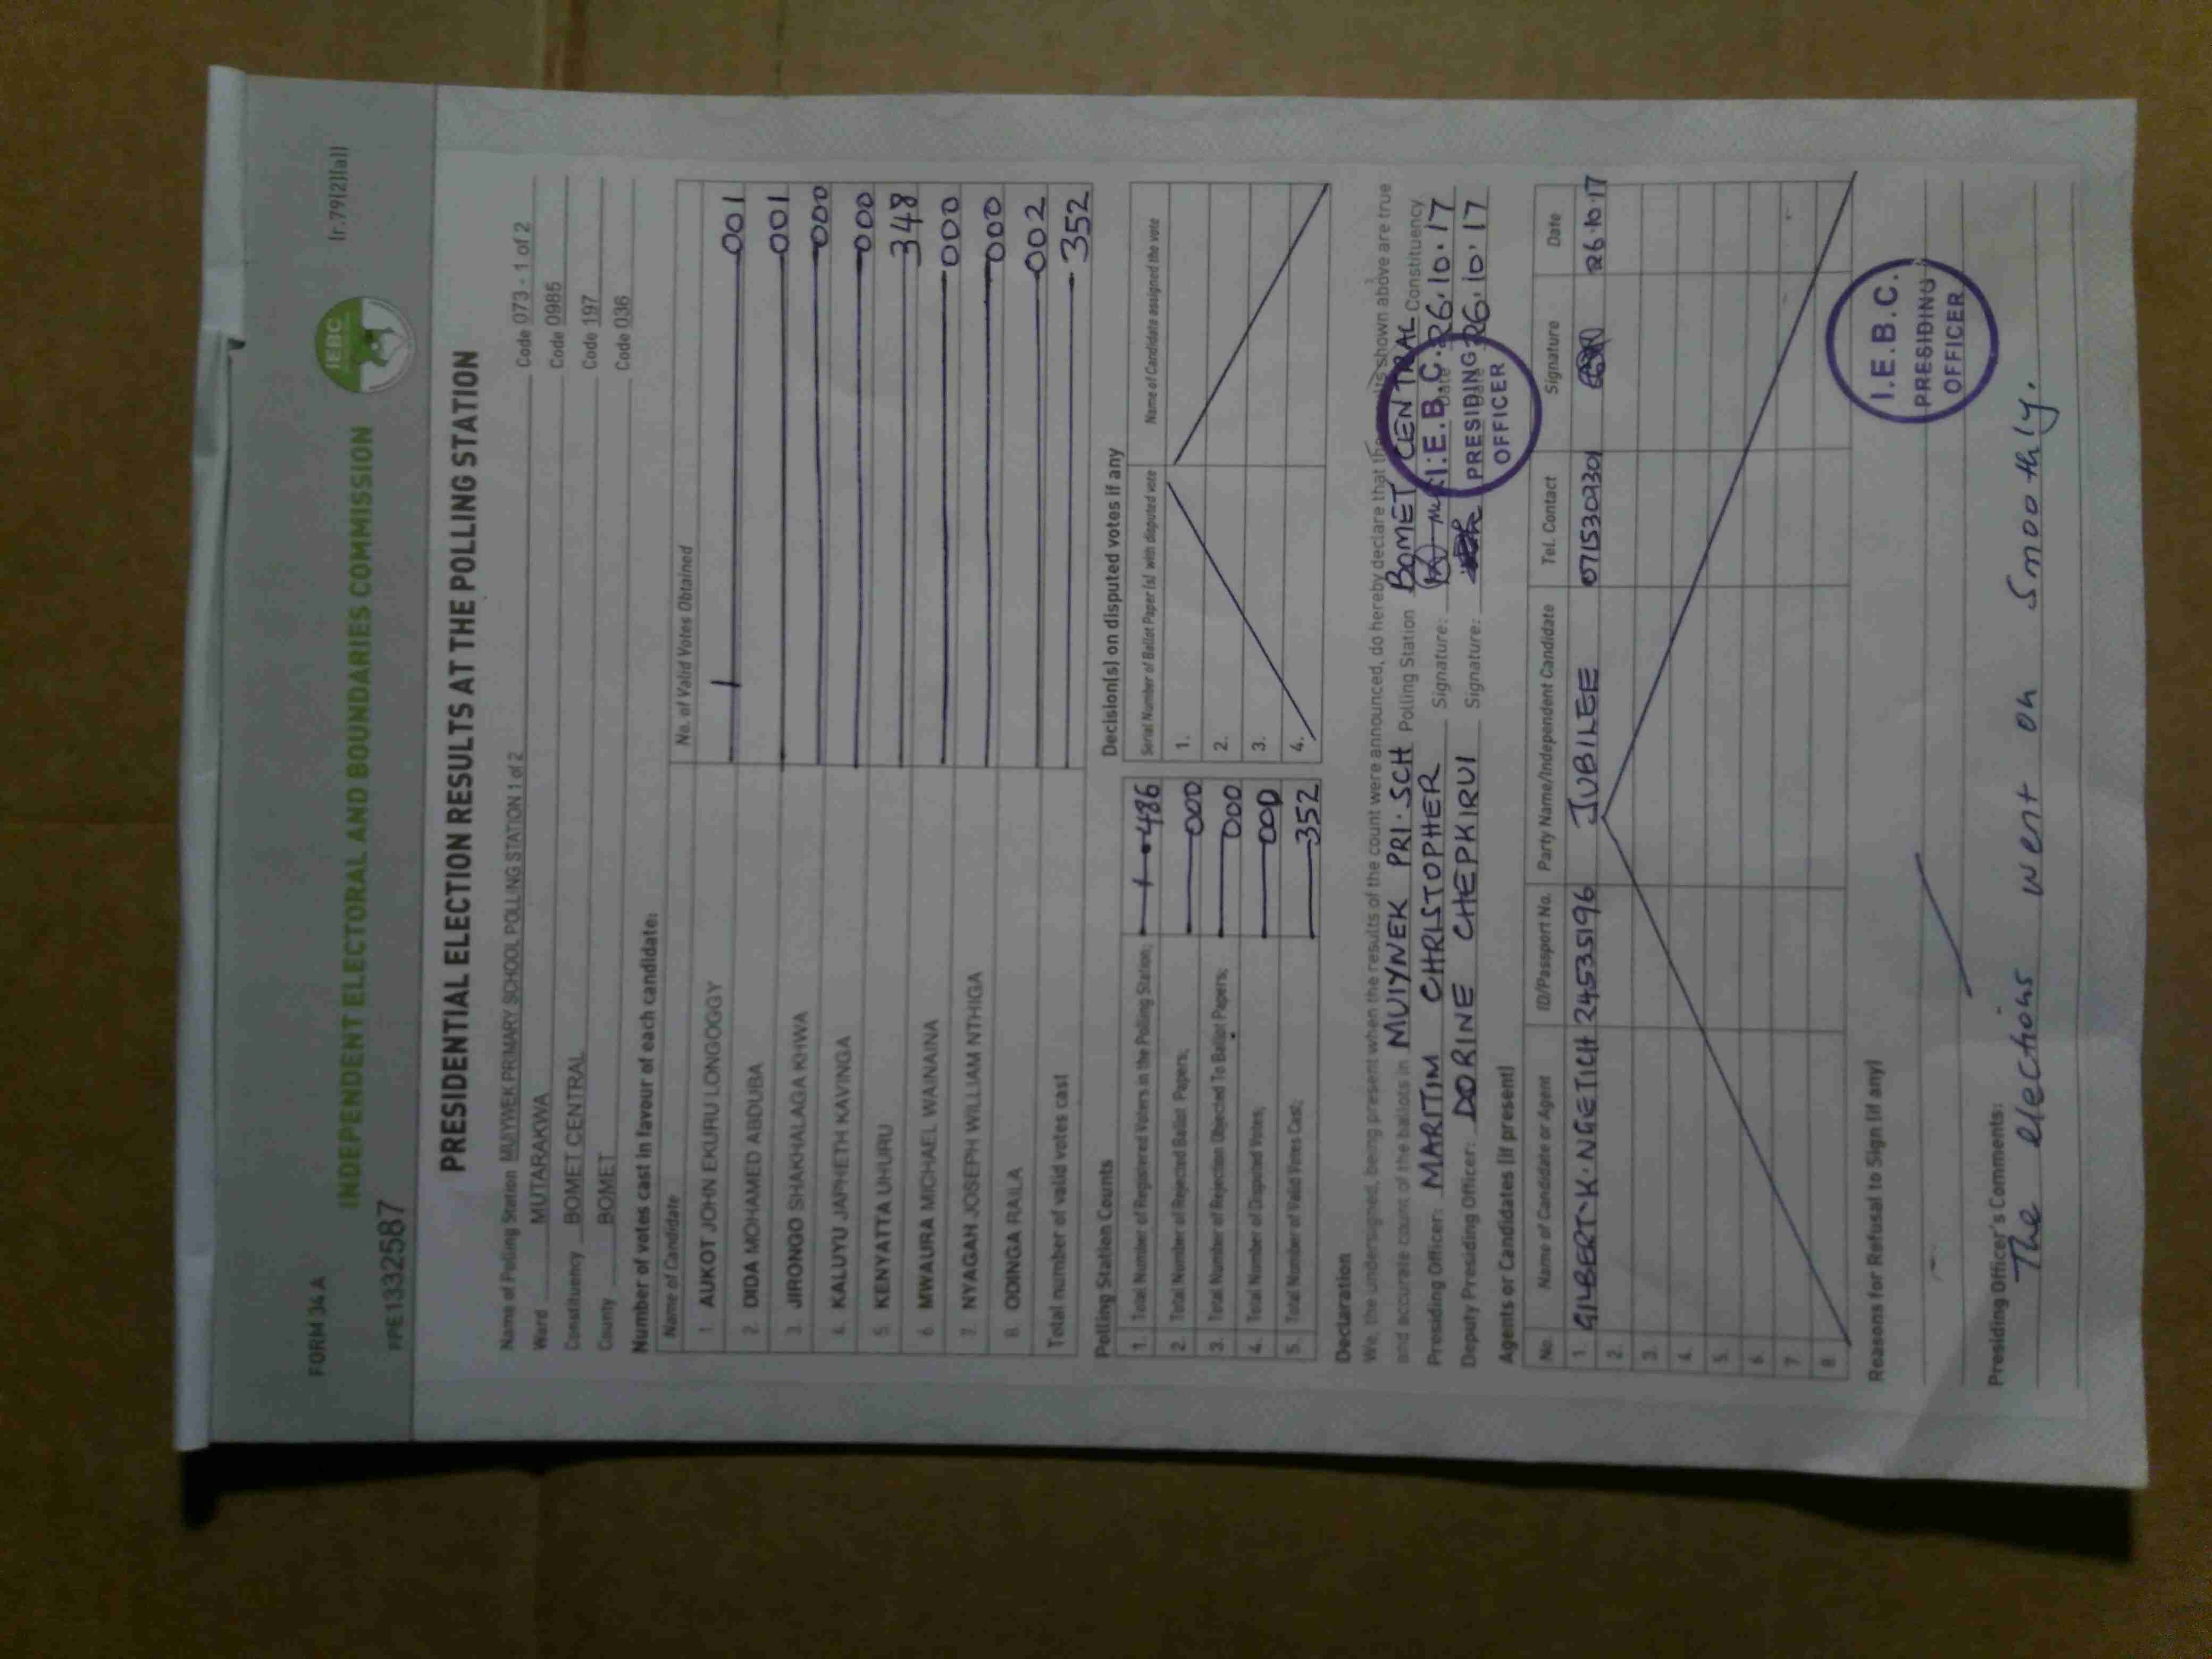 FORM 34 A
(r.79(2)(a))
INDEPENDENT ELECTORAL AND BOUNDARIES COMMISSION
IEBC
PPE1332587
PRESIDENTIAL ELECTION RESULTS AT THE POLLING STATION
Name of Polling Station MUIYWEK PRIMARY SCHOOL POLLING STATION 1 of 2 Code 073 - 1 of 2
Ward MUTARAKWA Code 0985
Constituency BOMET CENTRAL Code 197
County BOMET Code 036
Number of votes cast in favour of each candidate:
Name of Candidate No. of Valid Votes Obtained
1. AUKOT JOHN EKURU LONGOGGY 001
2. DIDA MOHAMED ABDUBA 001
3. JIRONGO SHAKHALAGA KHWA 000
4. KALUYU JAPHETH KAVINGA 000
5. KENYATTA UHURU 348
6. MWAURA MICHAEL WAINAINA 000
7. NYAGAH JOSEPH WILLIAM NTHIGA 000
8. ODINGA RAILA 002
Total number of valid votes cast 352
Polling Station Counts
1. Total Number of Registered Voters in the Polling Station; 486
2. Total Number of Rejected Ballot Papers; 000
3. Total Number of Rejection Objected To Ballot Papers; 000
4. Total Number of Disputed Votes; 000
5. Total Number of Valid Votes Cast; 352
Decision(s) on disputed votes if any
Serial Number of Ballot Paper (s) with disputed vote Name of Candidate assigned the vote
1.
2.
3.
4.
Declaration
We, the undersigned, being present when the results of the count were announced, do hereby declare that the results shown above are true
and accurate count of the ballots in MUIYNEK PRI. SCH Polling Station BOMET CENTRAL Constituency
Presiding Officer: MARITIM CHRISTOPHER Signature: Date 26.10.17
Deputy Presiding Officer: DORINE CHEPKIRUI Signature: Date 26.10.17
I.E.B.C.
PRESIDING
OFFICER
Agents or Candidates (if present)
No. Name of Candidate or Agent ID/Passport No. Party Name/Independent Candidate Tel. Contact Signature Date
1. GILBERT K. NGETICH 24535196 JUBILEE 0715309301 26.10.17
2.
3.
4.
5.
6.
7.
8.
Reasons for Refusal to Sign (if any)
I.E.B.C.
PRESIDING
OFFICER
Presiding Officer's Comments:
The elections went on smoothly.